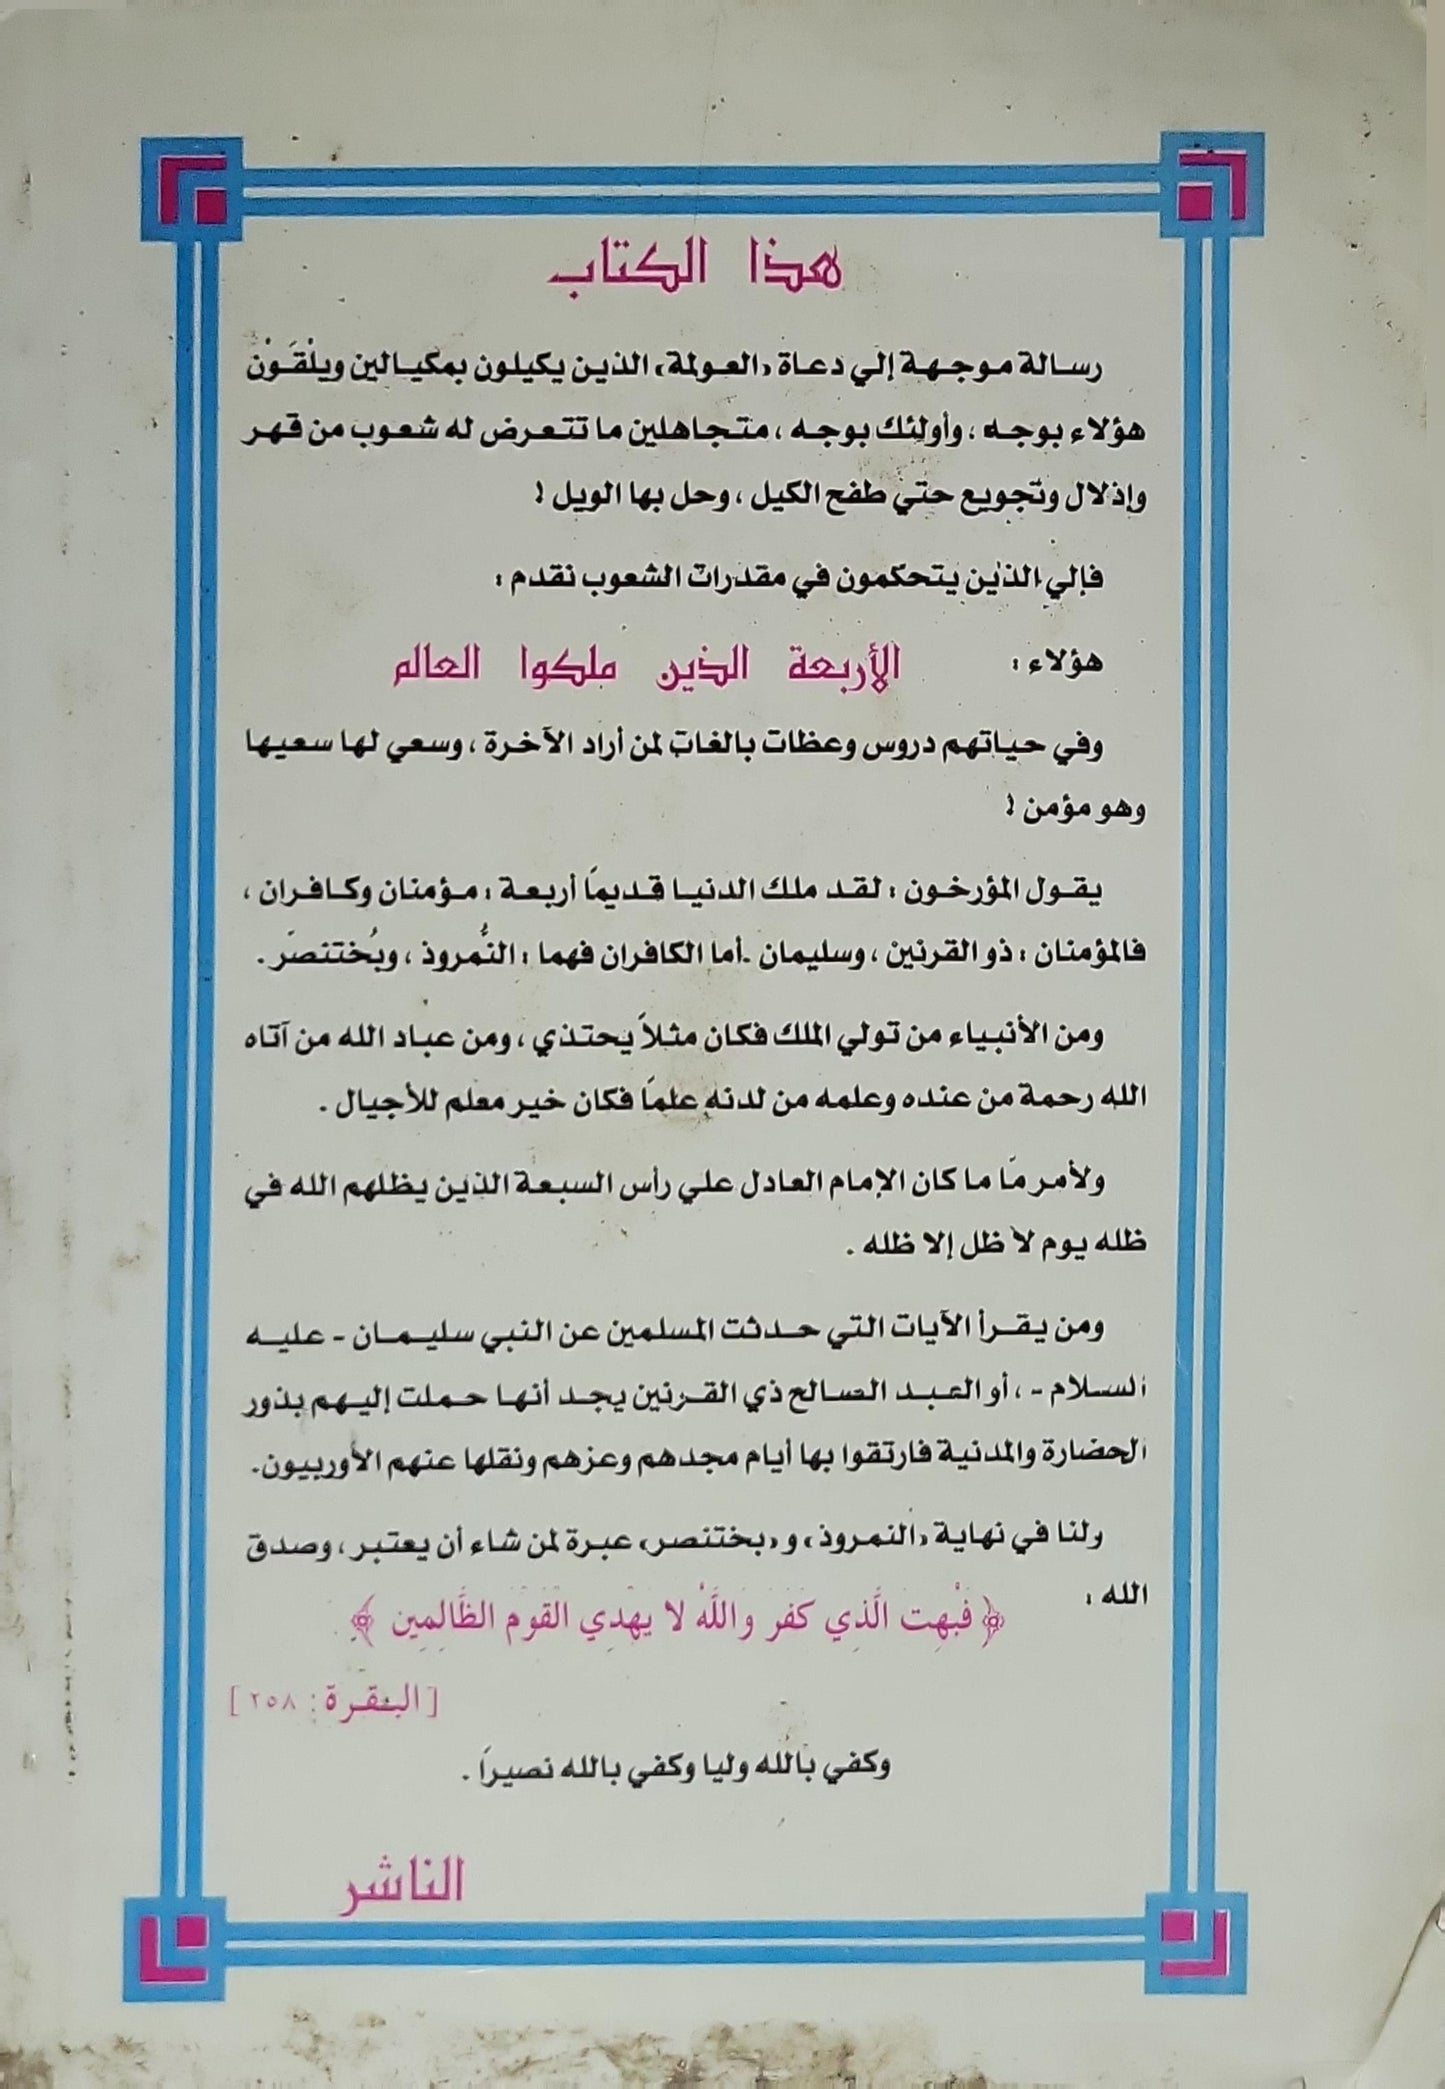 هذا الكتاب
رسالة موجهة إلي دعاة «العولمة» الذين يكيلون بمكيالين ويلْقَوْن
هؤلاء بوجه ، وأولئك بوجه ، متجاهلين ما تتعرض له شعوب من قهر
وإذلال وتجويع حتي طفح الكيل ، وحل بها الويل !
فإلي الذين يتحكمون في مقدرات الشعوب نقدم :
هؤلاء : الأربعة الذين ملكوا العالم
وفي حياتهم دروس وعظات بالغات لمن أراد الآخرة ، وسعي لها سعيها
وهو مؤمن !
يقول المؤرخون : لقد ملك الدنيا قديمًا أربعة : مؤمنان وكافران ،
فالمؤمنان : ذو القرنين ، وسليمان . أما الكافران فهما : النُّمروذ ، وبُختنصَر .
ومن الأنبياء من تولي الملك فكان مثلاً يحتذي ، ومن عباد الله من آتاه
الله رحمة من عنده وعلمه من لدنه علمًا فكان خير معلم للأجيال .
ولأمر مّا ما كان الإمام العادل علي رأس السبعة الذين يظلهم الله في
ظله يوم لا ظل إلا ظله .
ومن يقرأ الآيات التي حدثت المسلمين عن النبي سليمان - عليه
السلام - ، أو العبد الصالح ذي القرنين يجد أنها حملت إليهم بذور
الحضارة والمدنية فارتقوا بها أيام مجدهم وعزهم ونقلها عنهم الأوربيون .
ولنا في نهاية «النمروذ» و «بختنصر» عبرة لمن شاء أن يعتبر ، وصدق
الله : ﴿ فَبُهِتَ الَّذِي كَفَرَ وَاللَّهُ لا يَهْدِي الْقَوْمَ الظَّالِمِين ﴾
[البقرة : ٢٥٨]
وكفي بالله وليا وكفي بالله نصيراً .
الناشر